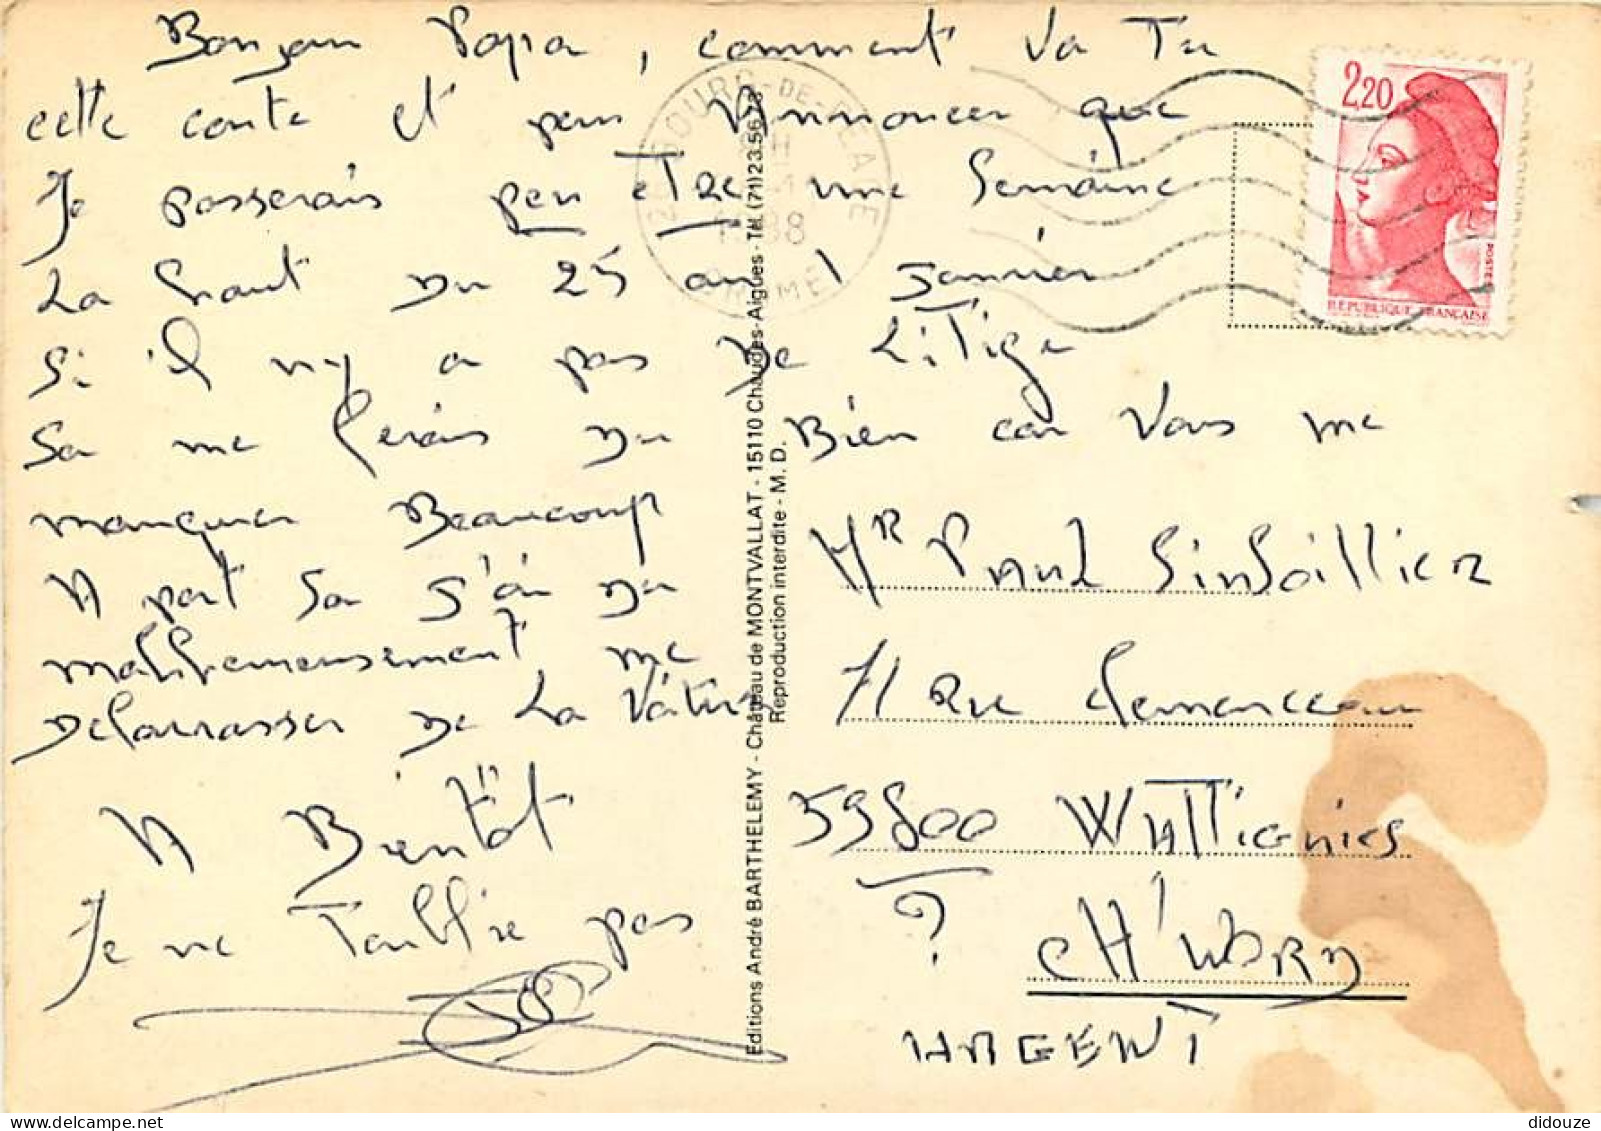 Bonjour Papa, comment va Tu
cette carte et pour t'Annoncer que
Je passerais peu eTRe une Semaine
La haut du 25 au 1 Janvier
Si il n'y a pas de LiTige
Sa me ferais du Bien car Vous me
manquer Beaucoup
A part Sa J'ai du
malheureusement me
Debarrasser de La Voiture
A Bientôt
Je ne T'oublie pas
2,20
POSTE
REPUBLIQUE FRANÇAISE
BOURG-DE-PEAGE
DROME
Editions André BARTHELEMY - Château de MONTVALLAT - 15110 Chaudes-Aigues - Tél. (71) 23.56.73
Reproduction interdite - M. D.
MR PAUL
71 Rue Clemenceau
59800 WATTignies
?
CH'
ARGENT
didouze